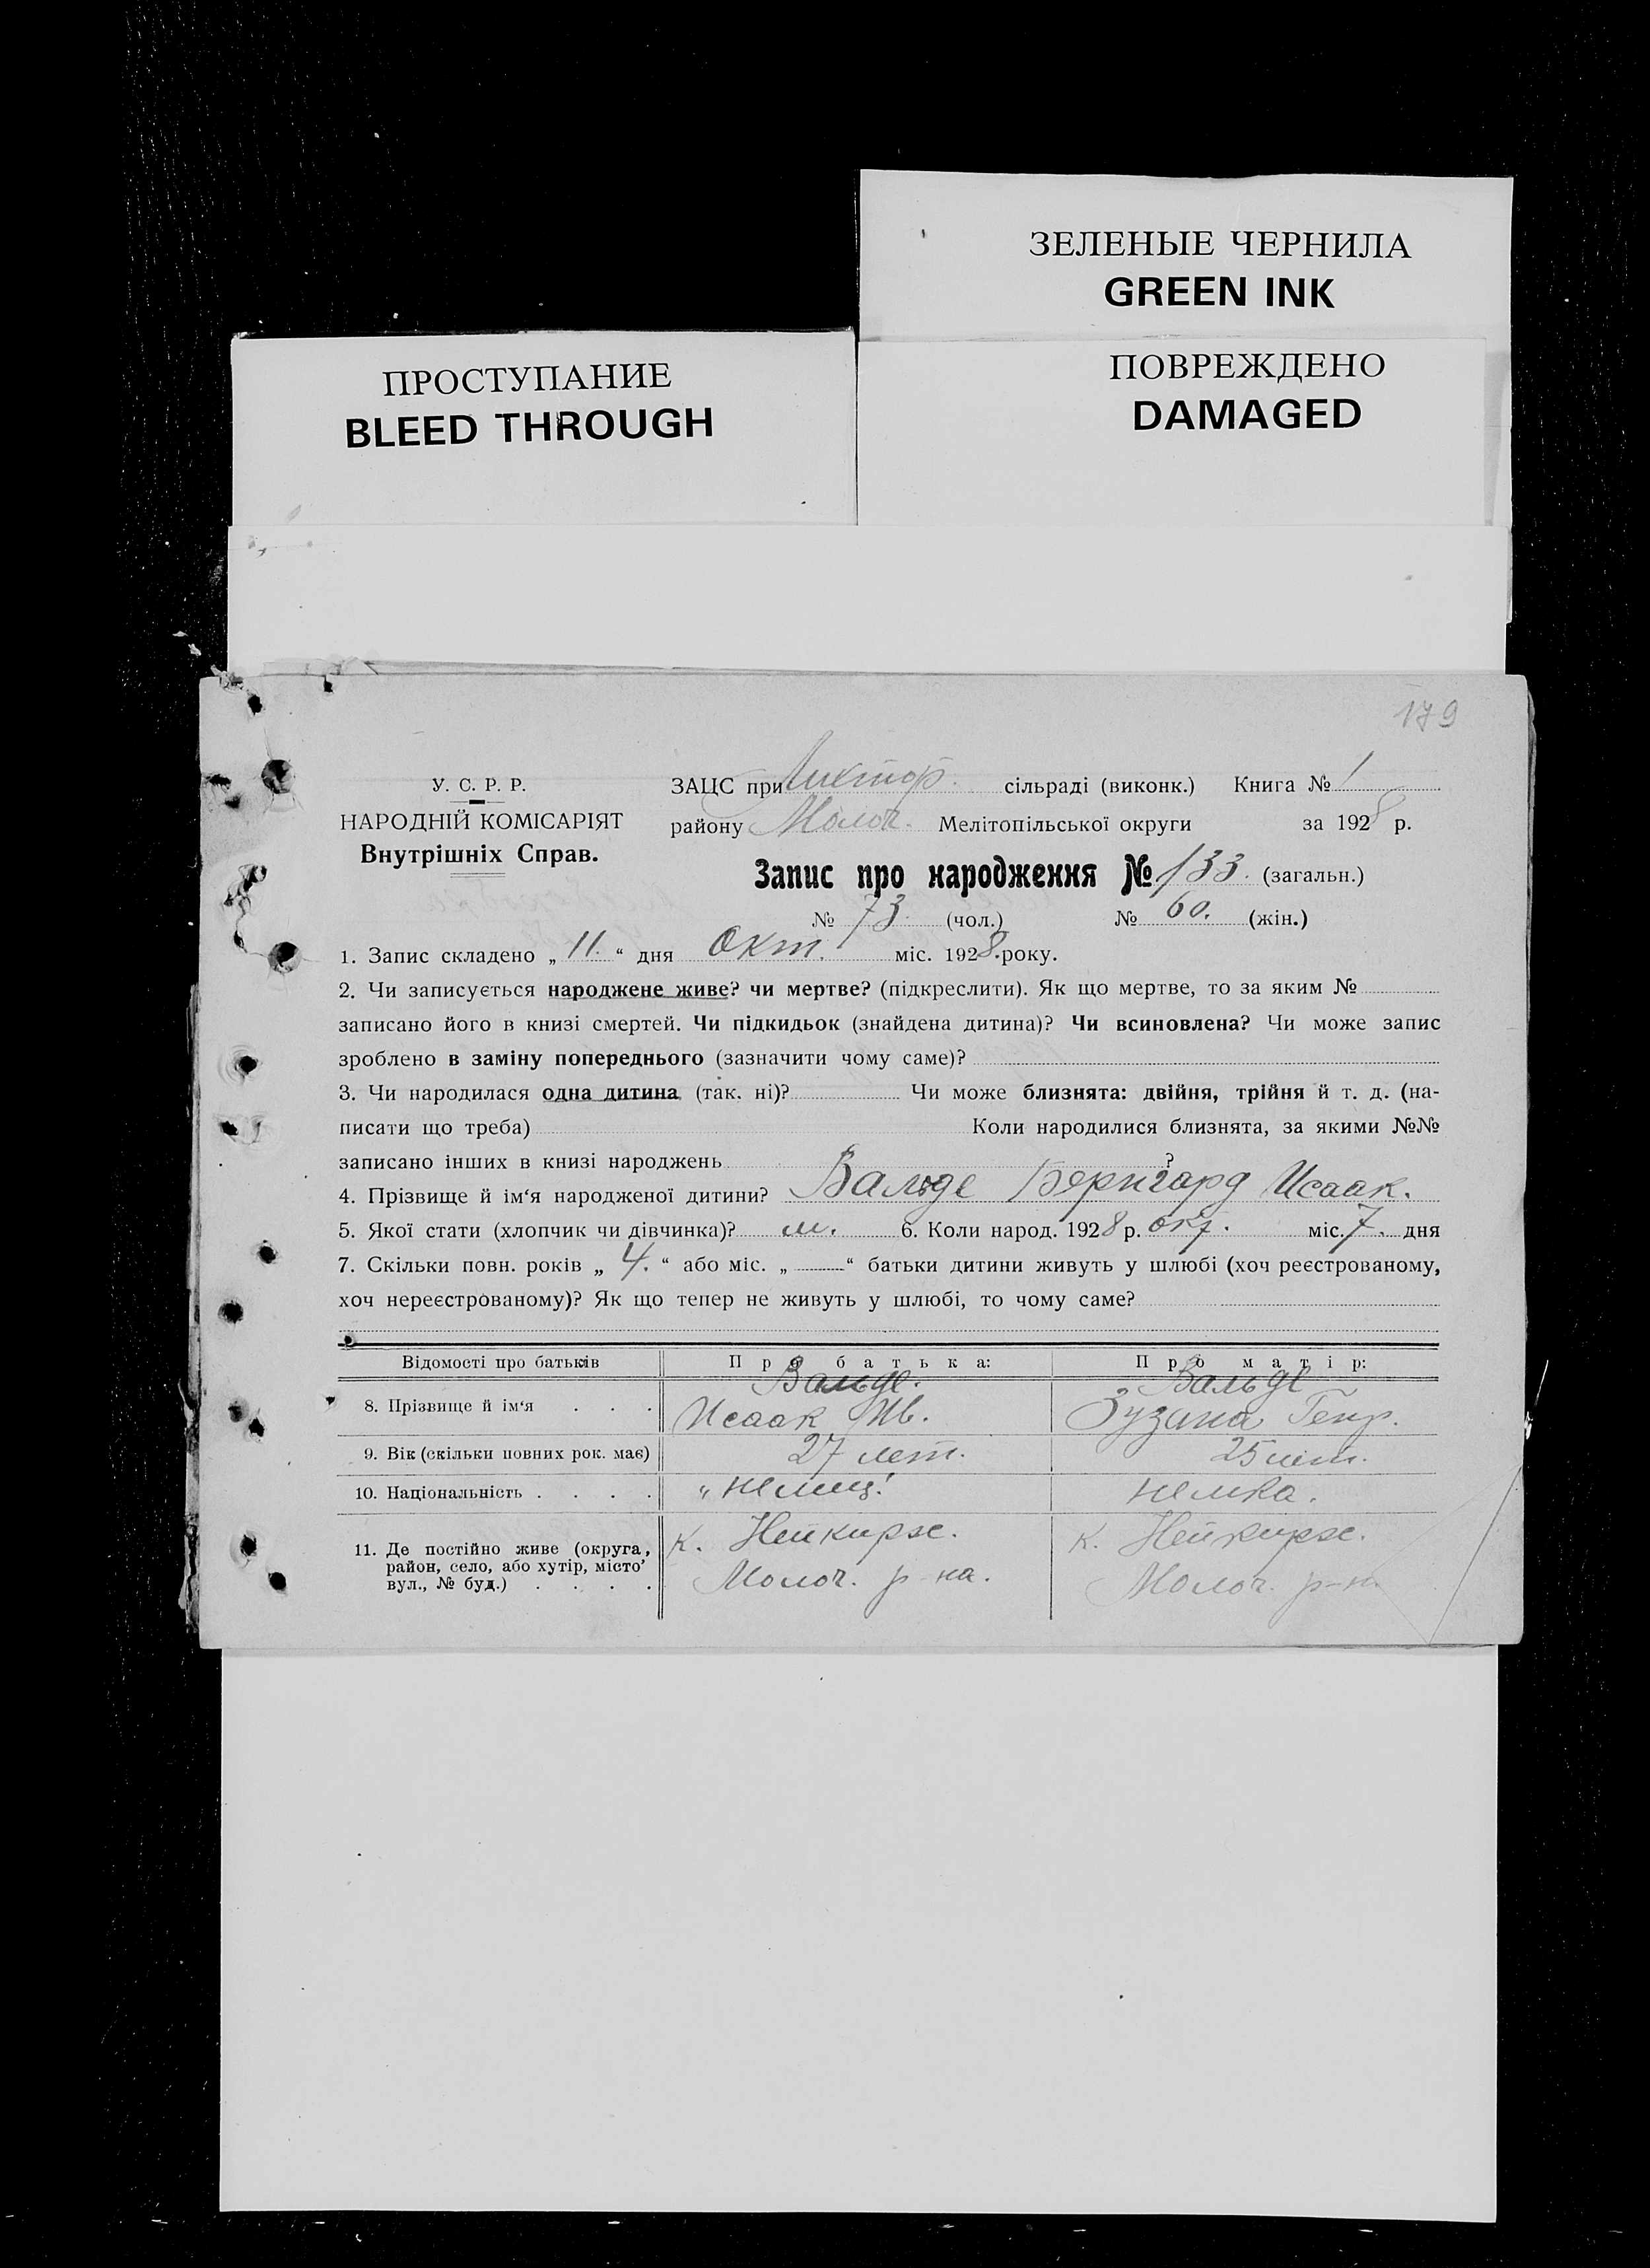 ЗЕЛЕНЫЕ ЧЕРНИЛА
GREEN INK
ПРОСТУПАНИЕ
BLEED THROUGH
ПОВРЕЖДЕНО
DAMAGED
179
У. С. Р. Р.
НАРОДНІЙ КОМІСАРІЯТ
Внутрішніх Справ.
ЗАЦС при сільраді (виконк.) Книга № 1
району Молоч. Мелітопільської округи за 1928 р.
Запис про народження № 133. (загальн.)
№ 73. (чол.) № 60. (жін.)
1. Запис складено „ 11. “ дня Окт. міс. 1928.року.
2. Чи записується народжене живе? чи мертве? (підкреслити). Як що мертве, то за яким №
записано його в книзі смертей. Чи підкидьок (знайдена дитина)? Чи всиновлена? Чи може запис
зроблено в заміну попереднього (зазначити чому саме)?
3. Чи народилася одна дитина (так. ні)? Чи може близнята: двійня, трійня й т. д. (на-
писати що треба) Коли народилися близнята, за якими №№
записано інших в книзі народжень ?
4. Прізвище й ім‘я народженої дитини? Вальде Бернгард Исаак.
5. Якої стати (хлопчик чи дівчинка)? м. 6. Коли народ. 1928 р. окт. міс. 7. дня
7. Скільки повн. років „ 4. “ або міс. „ “ батьки дитини живуть у шлюбі (хоч реєстрованому,
хоч нереєстрованому)? Як що тепер не живуть у шлюбі, то чому саме?
Відомості про батьків Про батька: Про матір:
8. Прізвище й ім‘я . . . Вальде. Исаак Ив. Вальде Зузана Генр.
9. Вік (скільки повних рок. має) 27 лет. 25 лет.
10. Національність . . . . „ немец. немка.
11. Де постійно живе (округа, район, село, або хутір, місто’ вул., № буд.) . . . . к. Нейкирх. Молоч. р-на. к. Нейкирх. Молоч. р-н